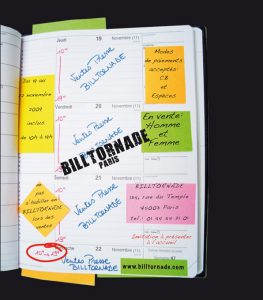 Jeudi 19 Novembre (11)
10H
Ventes Presse
BILLTORNADE
19H
Modes
de paiements
acceptés:
CB
et
Espèces
Du 19 au
22 novembre
2009
inclus
de 10h à 19h
Vendredi 20 Novembre (11)
10H
Ventes Presse
BILLTORNADE
19H
En vente:
Homme
et
Femme
BILLTORNADE
PARIS
Samedi 21 Novembre (11)
Ventes Presse
BILLTORNADE
pas
d'habiller en
BILLTORNADE
lors des
ventes
BILLTORNADE
rue du Temple
75003 Paris
Invitation à présenter
à l'accueil
22 Novembre (11)
10H - 19H
Ventes Presse
BILLTORNADE
47
www.billtornade.com